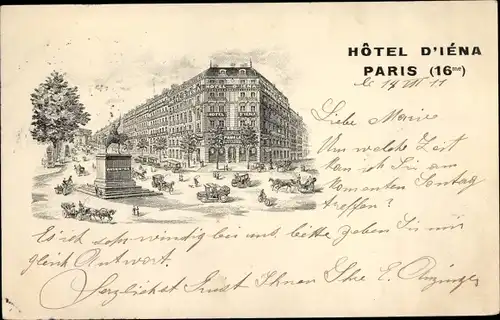 HÔTEL D'IÉNA
PARIS (16me)
le 19 VII 11
HOTEL D'IENA
Liebe Marie
Um welche Zeit
kan ich Sie am
komenten Sontag
treffen?
Es ist sehr windig bei uns. bitte geben Sie mir
gleich Antwort.
Herzlichst Grüst Ihnen Ihre E.